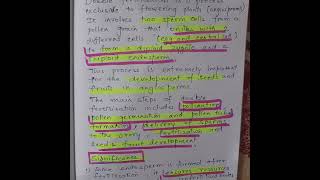 Double fertilisation is a process
exclusive to flowering plants (angiosperms)
It involves two sperm cells from
a pollen grain that unites with 2
different cells (egg and central cell)
to form a diploid zygote and a
triploid endosperm.
This process is extremely important
for the development of seeds and
fruits in angiosperms.
The main steps of double
fertilisation include pollination,
pollen germination and pollen tube
formation, delivery of sperms
to the ovary, fertilisation and
seed & fruit development
Significance
endosperm is formed after
fertilisation, it ensures resources